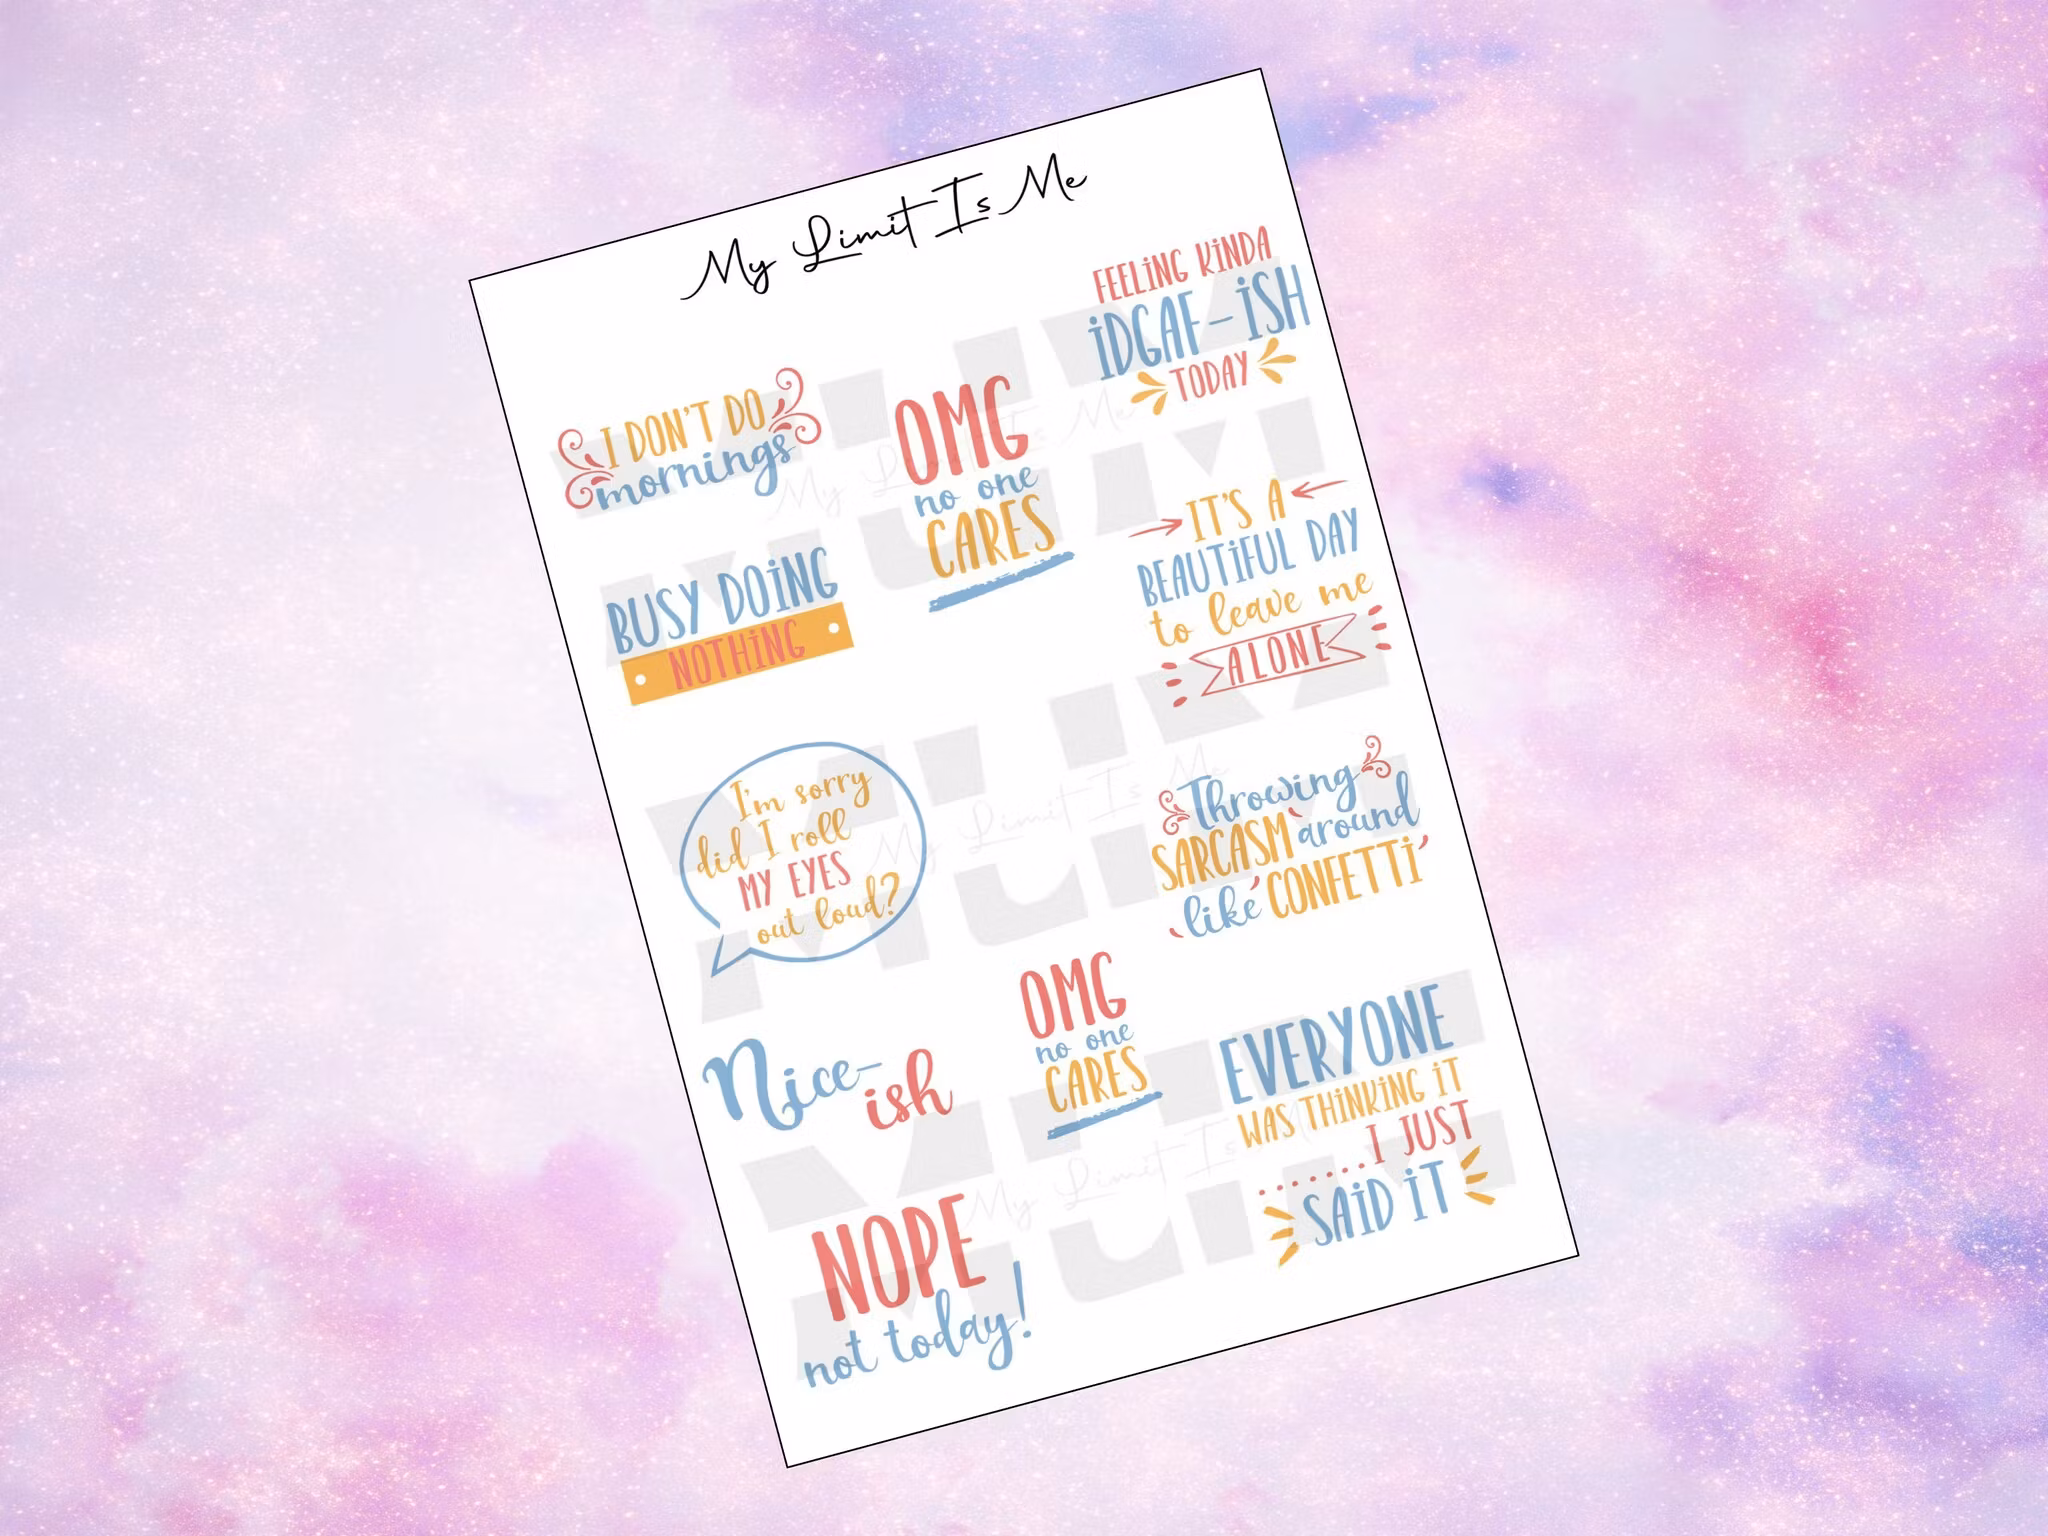 My Limit Is Me
FEELING KINDA
IDGAF-ISH
TODAY
I DON'T DO
mornings
OMG
no one
CARES
IT'S A
BEAUTIFUL DAY
to leave me
ALONE
BUSY DOING
NOTHING
I'm sorry
did I roll
MY EYES
out loud?
Throwing
SARCASM around
like CONFETTI
Nice-
ish
OMG
no one
CARES
EVERYONE
WAS THINKING IT
.......I JUST
SAID IT
NOPE
not today!
My Limit Is Me
My Limit Is Me
My Limit Is Me